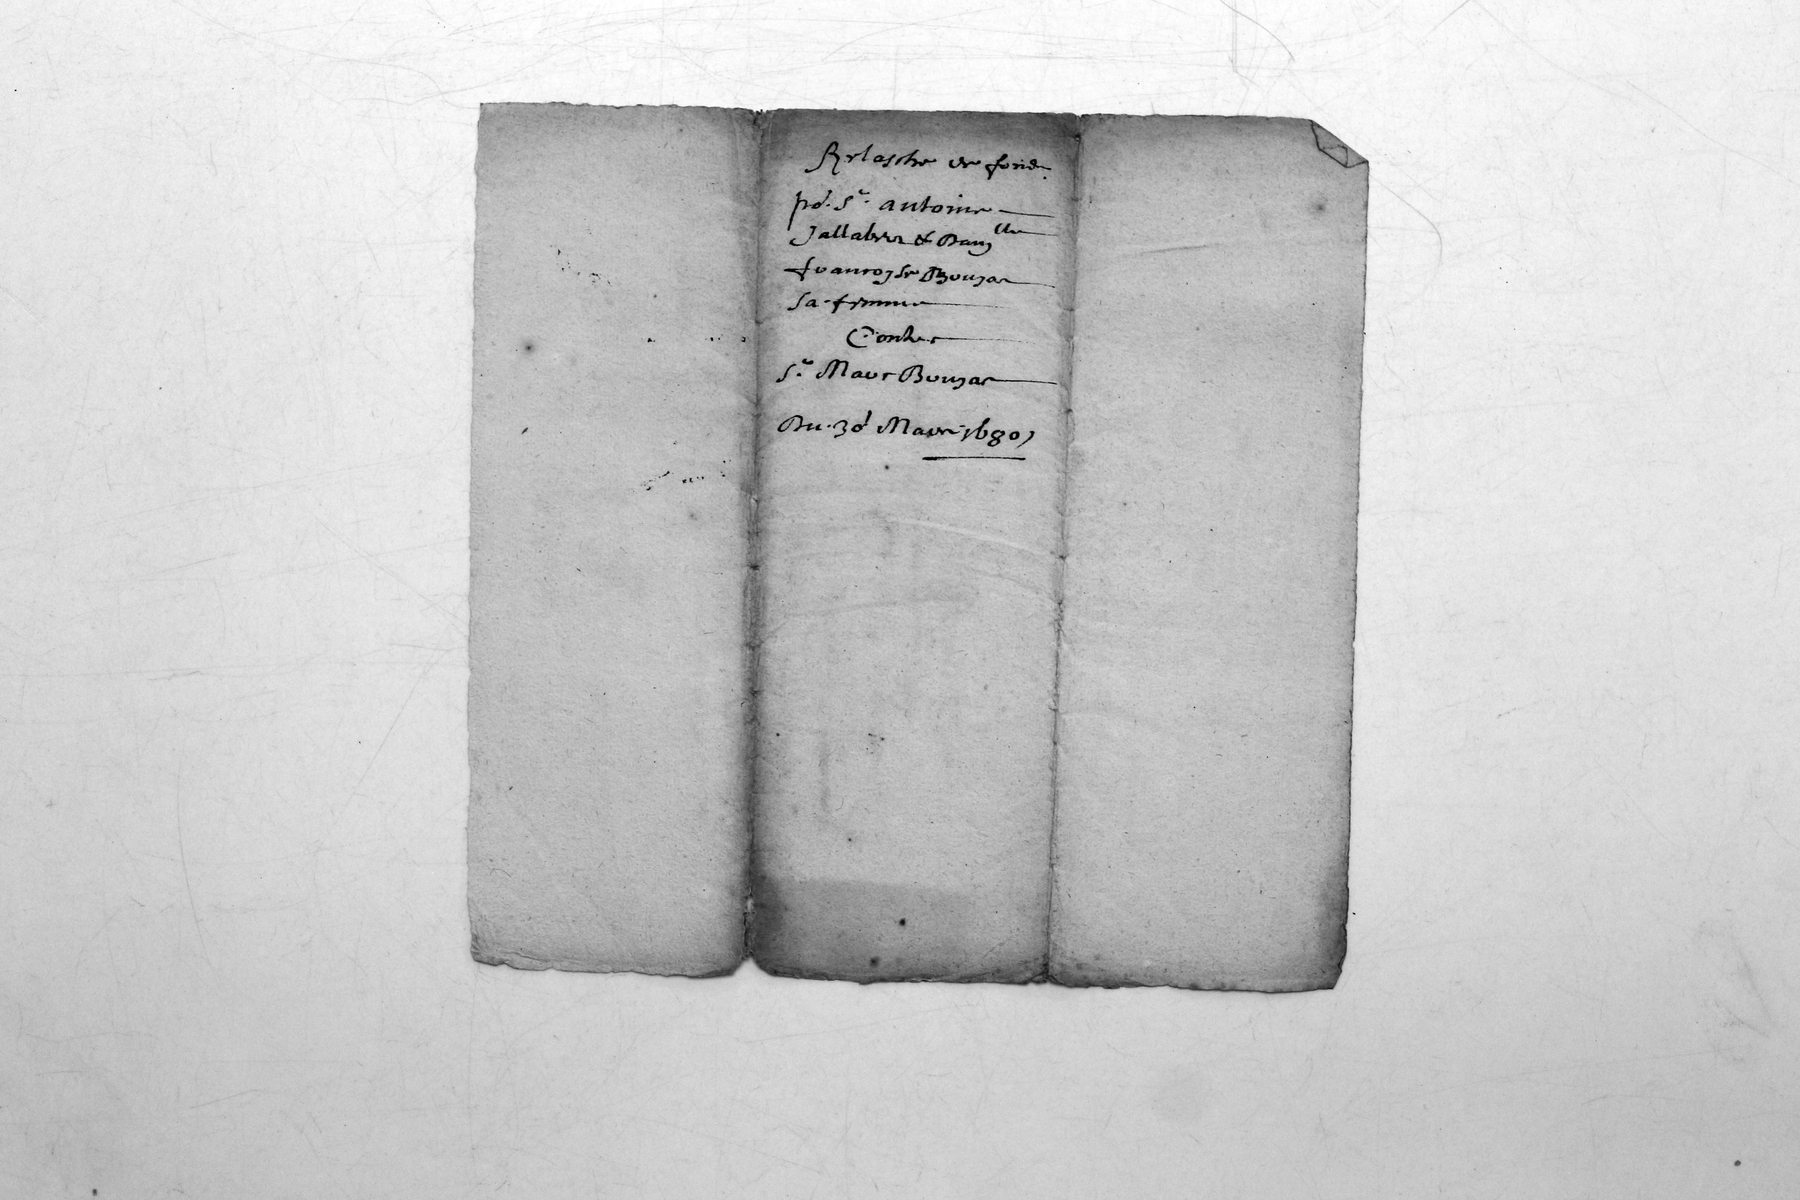 Relasche de fond
pr. Sr. antoine
Jallabert & Damlle
francoyse Bouzac
sa femme
Contre
Sr. Marc Bouzac
Du 3e Mars 1680